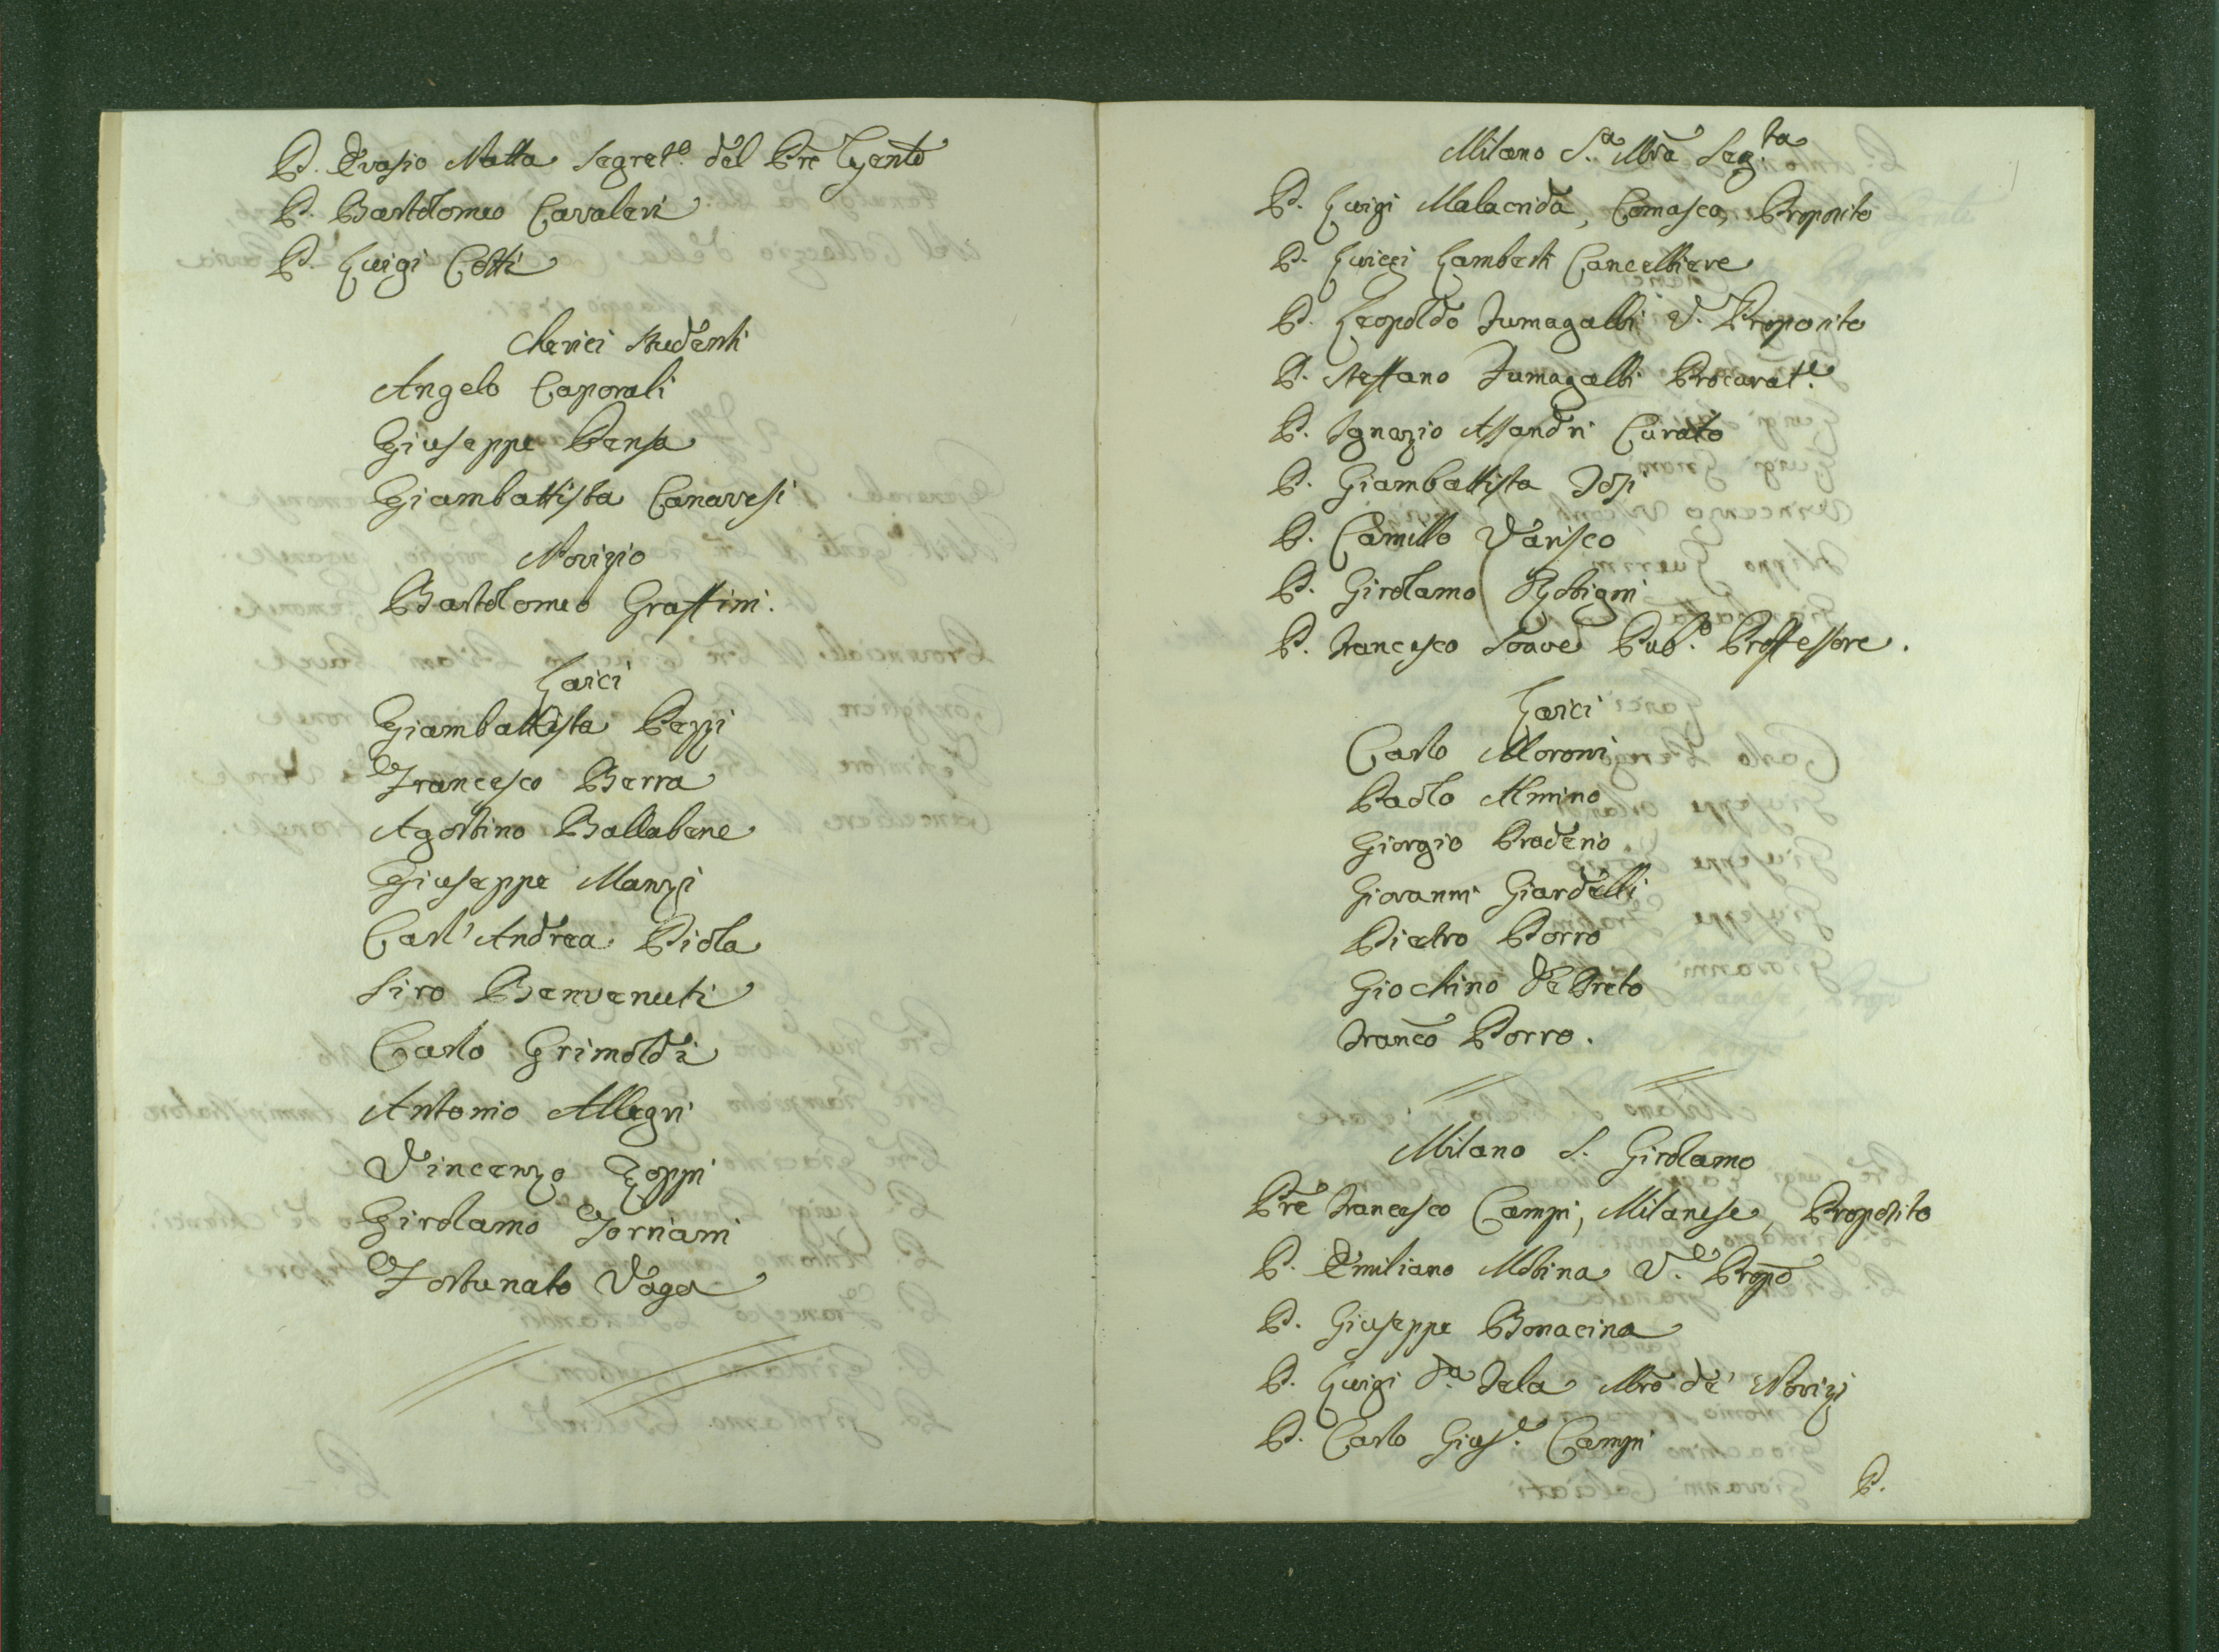 P. Evasio Natta Segret.º del Pre Gente
P. Bartolomeo Cavaleri
P. Luigi Cotti
Cherici Studenti
Angelo Caporali
Giuseppe Pensa
Giambattista Canavesi
Novizio
Bartolomeo Graffini.
Laici
Giambattista Pezzi
Francesco Berra
Agostino Ballabene
Giuseppe Manzi
Carl'Andrea Piola
Siro Benvenuti
Carlo Grimoldi
Antonio Allegri
Vincenzo Zoppi
Girolamo Torriani
Fortunato Vaga
Milano S.ª Mrã Seg.ta
P. Luigi Malacrida, Comasco, Proposito
P. Luigi Lamberti Cancelliere
P. Leopoldo Fumagalli V. Proposito
P. Steffano Fumagalli Procurat.e
P. Ignazio Assandri Curato
P. Giambattista Josi
P. Camillo Varisco
P. Girolamo Robigni
P. Francesco Soave Pub.º Proffessore.
Laici
Carlo Moroni
Paolo Almino
Giorgio Praderio
Giovanni Giardelli
Pietro Porro
Giochino De Preto
Franco Porro.
Milano S. Girolamo
Pre Francesco Campi, Milanese, Proposito
P. Emiliano Molina V.e Propo
P. Giuseppe Bonacina
P. Luigi Mrõ de' Novizj
P. Carlo Gius.e Campi
P.